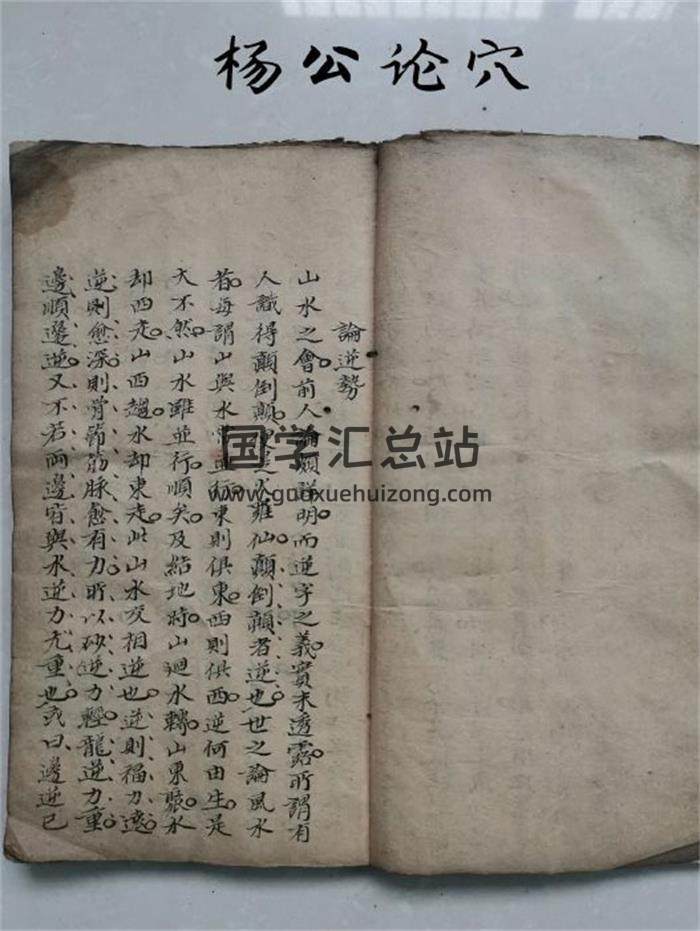 杨公论穴
論逆勢
山水之會前人論頗詳明而逆字之義實未透露所謂有
人識得顛倒顛是大仙顛倒顛者逆也世之論風水
者每謂山與水並行東則俱東西則俱西逆何由生是
大不然山水雖並行順矣及結地時山迴水轉山東水
却西走山西趨水却東走此山水交相逆也逆則福力
逆則愈深則骨節筋脉愈有力所以砂逆力輕龍逆力重
邊順邊逆又不若兩邊皆與水逆力尤重也或曰邊逆已
国学汇总站
www.guoxuehuizong.com